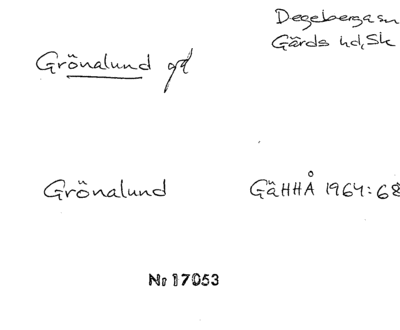 Degeberga sn
Gärds hd, Sk
Grönalund gd
Grönalund
GäHHÅ 1964:68
Nr 17053